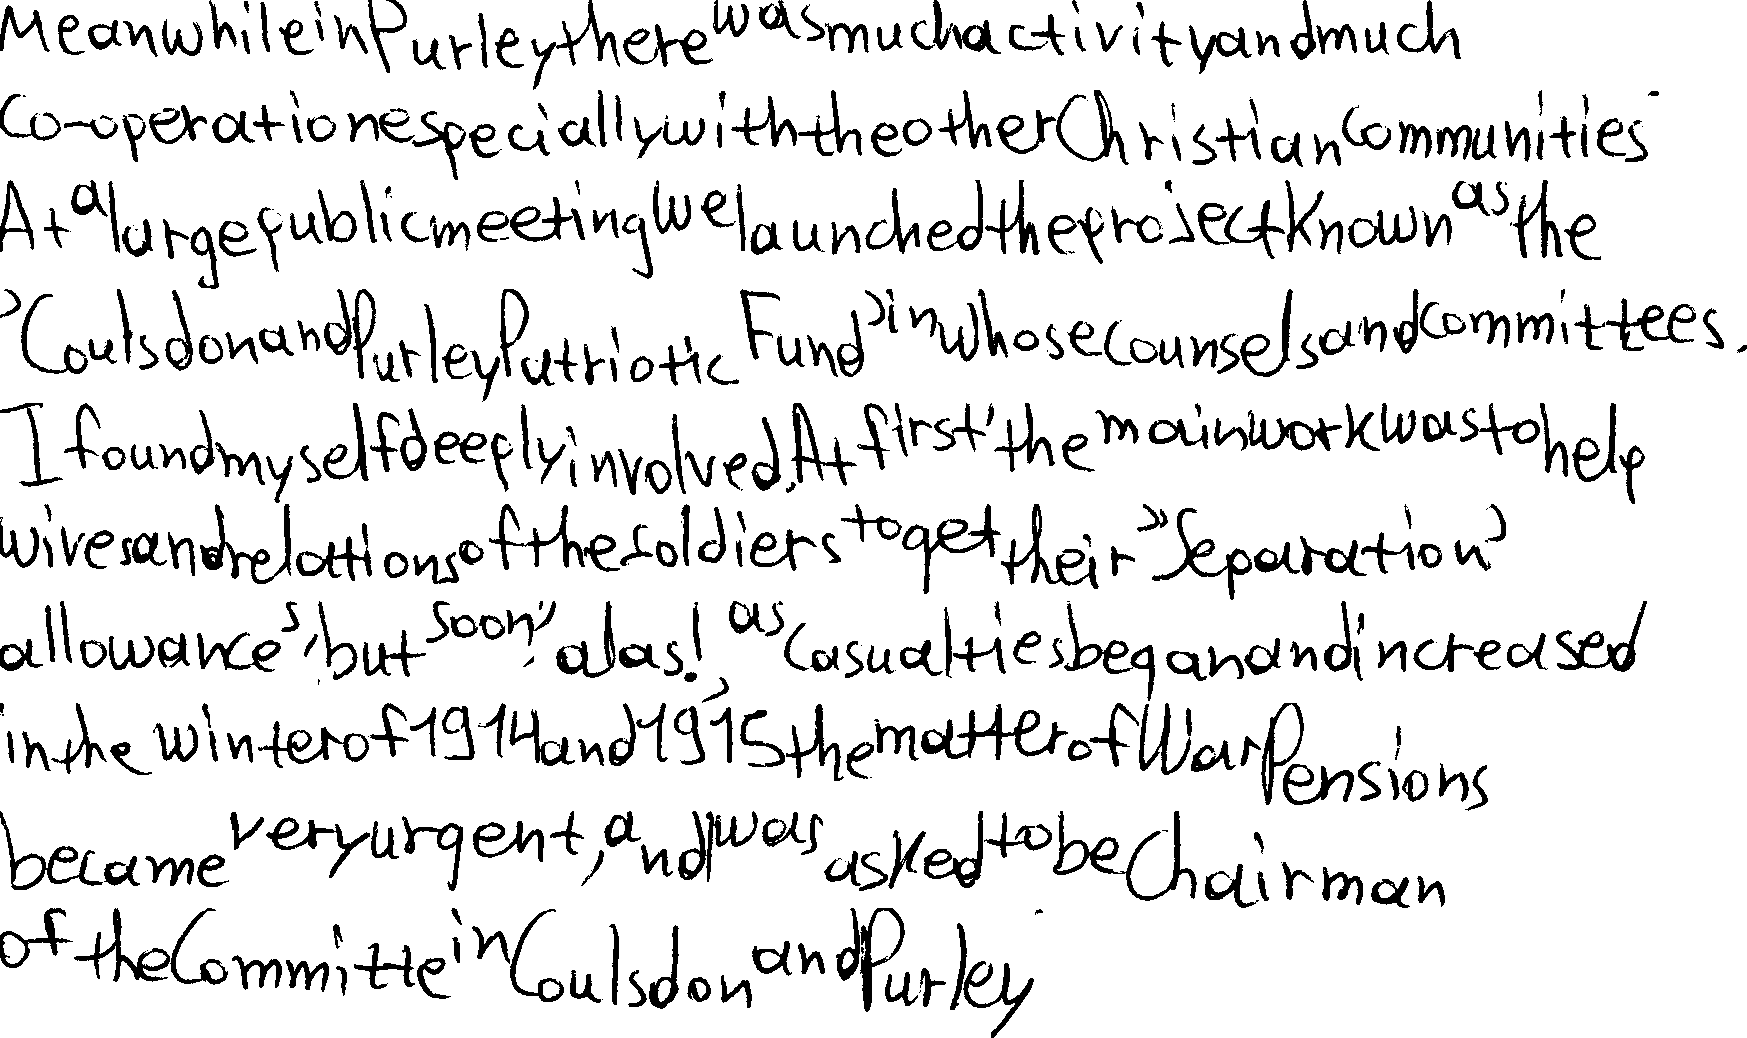 Meanwhile in Purley there was much activity and much
co-operation especially with the other Christian communities.
At a large public meeting we launched the project known as the
"Coulsdon and Purley Patriotic Fund" in whose counsels and committees.
I found myself deeply involved. At first, the main work was to help
wives and relations of the soldiers to get their "Separation"
allowances, but soon, alas! as casualties began and increased
in the winter of 1914 and 1915, the matter of War Pensions
became very urgent, and I was asked to be Chairman
of the Committe in Coulsdon and Purley.